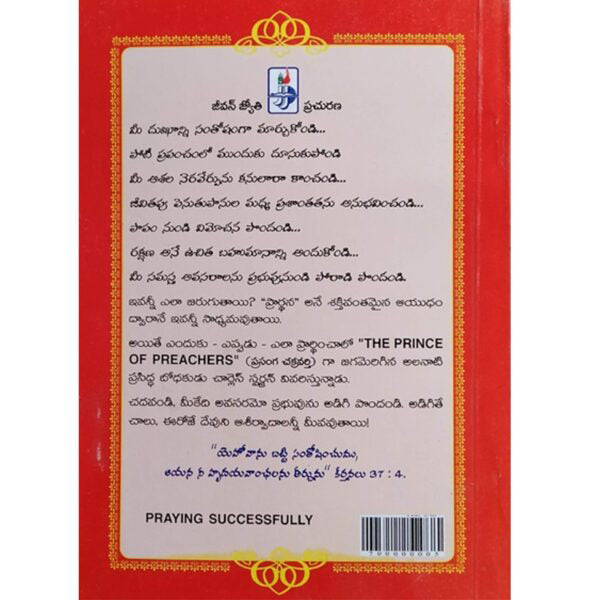 జీవన్ జ్యోతి ప్రచురణ
మీ దుఃఖాన్ని సంతోషంగా మార్చుకోండి...
పోటీ ప్రపంచంలో ముందుకు దూసుకుపోండి
మీ ఆశల నెరవేర్పును కనులారా కాంచండి...
జీవితపు పెనుతుపానుల మధ్య ప్రశాంతతను అనుభవించండి...
పాపం నుండి విమోచన పొందండి...
రక్షణ అనే ఉచిత బహుమానాన్ని అందుకోండి...
మీ సమస్త అవసరాలను ప్రభువునుండి పోరాడి పొందండి.
ఇవన్నీ ఎలా జరుగుతాయి? "ప్రార్థన" అనే శక్తివంతమైన ఆయుధం
ద్వారానే ఇవన్నీ సాధ్యమవుతాయి.
అయితే ఎందుకు - ఎప్పుడు - ఎలా ప్రార్థించాలో "THE PRINCE
OF PREACHERS" (ప్రసంగ చక్రవర్తి) గా జగమెరిగిన అలనాటి
ప్రసిద్ధ బోధకుడు చార్లెస్ స్పర్జన్ వివరిస్తున్నాడు.
చదవండి, మీకేది అవసరమో ప్రభువును అడిగి పొందండి. అడిగితే
చాలు, ఈరోజే దేవుని ఆశీర్వాదాలన్నీ మీవవుతాయి!
"యెహోవాను బట్టి సంతోషించుము,
ఆయన నీ హృదయవాంఛలను తీర్చును" కీర్తనలు 37 : 4.
PRAYING SUCCESSFULLY
700000003